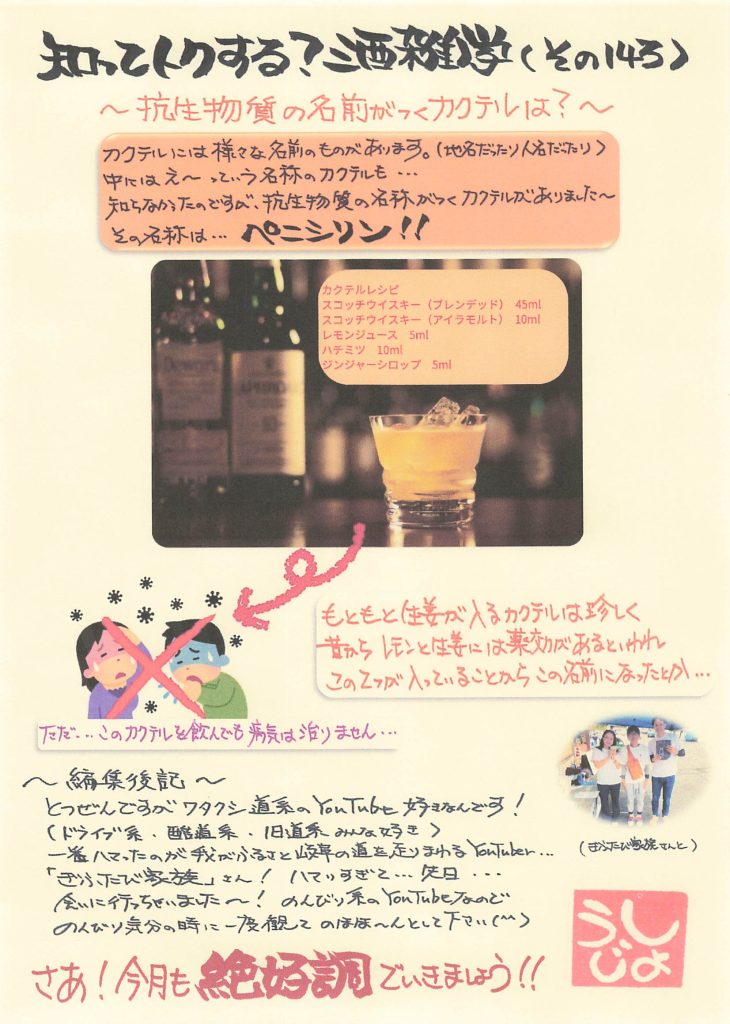 知ってトクする？酒雑学（その143）
～抗生物質の名前がつくカクテルは？～
カクテルには様々な名前のものがあります。（地名だったり人名だったり）
中にはえ～っていう名称のカクテルも…
知らなかったのですが、抗生物質の名称がつくカクテルがありました～
その名称は… ペニシリン!!
カクテルレシピ
スコッチウイスキー（ブレンデッド） 45ml
スコッチウイスキー（アイラモルト） 10ml
レモンジュース 5ml
ハチミツ 10ml
ジンジャーシロップ 5ml
Dewar's
もともと生姜が入るカクテルは珍しく
昔から レモンと生姜には薬効があるといわれ
この2つが入っていることからこの名前になったとか…
ただ…このカクテルを飲んでも病気は治りません…
～ 編集後記 ～
とつぜんですが ワタクシ 道系のYouTube 好きなんです！
（ドライブ系・酷道系・旧道系 みんな好き）
一番ハマったのが 我がふるさと岐阜の道を走りまわるYouTuber…
「ぎふたび家族」さん！ ハマりすぎて… 先日…
会いに行っちゃいました～！ のんびり系のYouTubeなので
のんびり気分の時に一度観て のほほ～んとして下さい(^^)
（ぎふたび家族さんと）
さあ！今月も絶好調でいきましょう!!
しょ
うじ